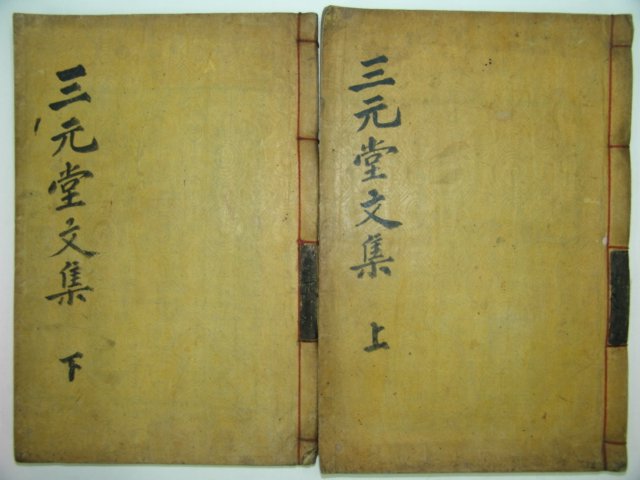 三元堂文集 上
三元堂文集 下